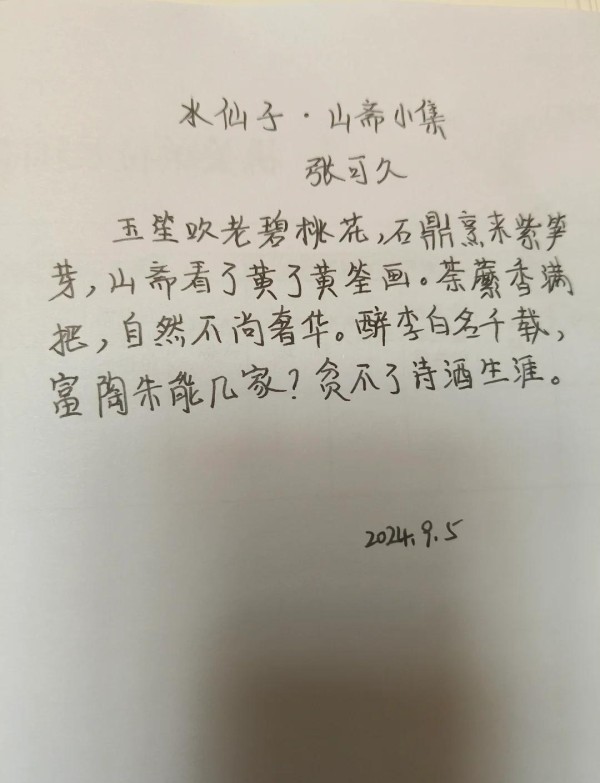 水仙子·山斋小集
张可久
玉笙吹老碧桃花,石鼎烹来紫笋
芽,山斋看了黄了黄筌画。荼蘼香满
把,自然不尚奢华。醉李白名千载,
富陶朱能几家?贫不了诗酒生涯。
2024.9.5